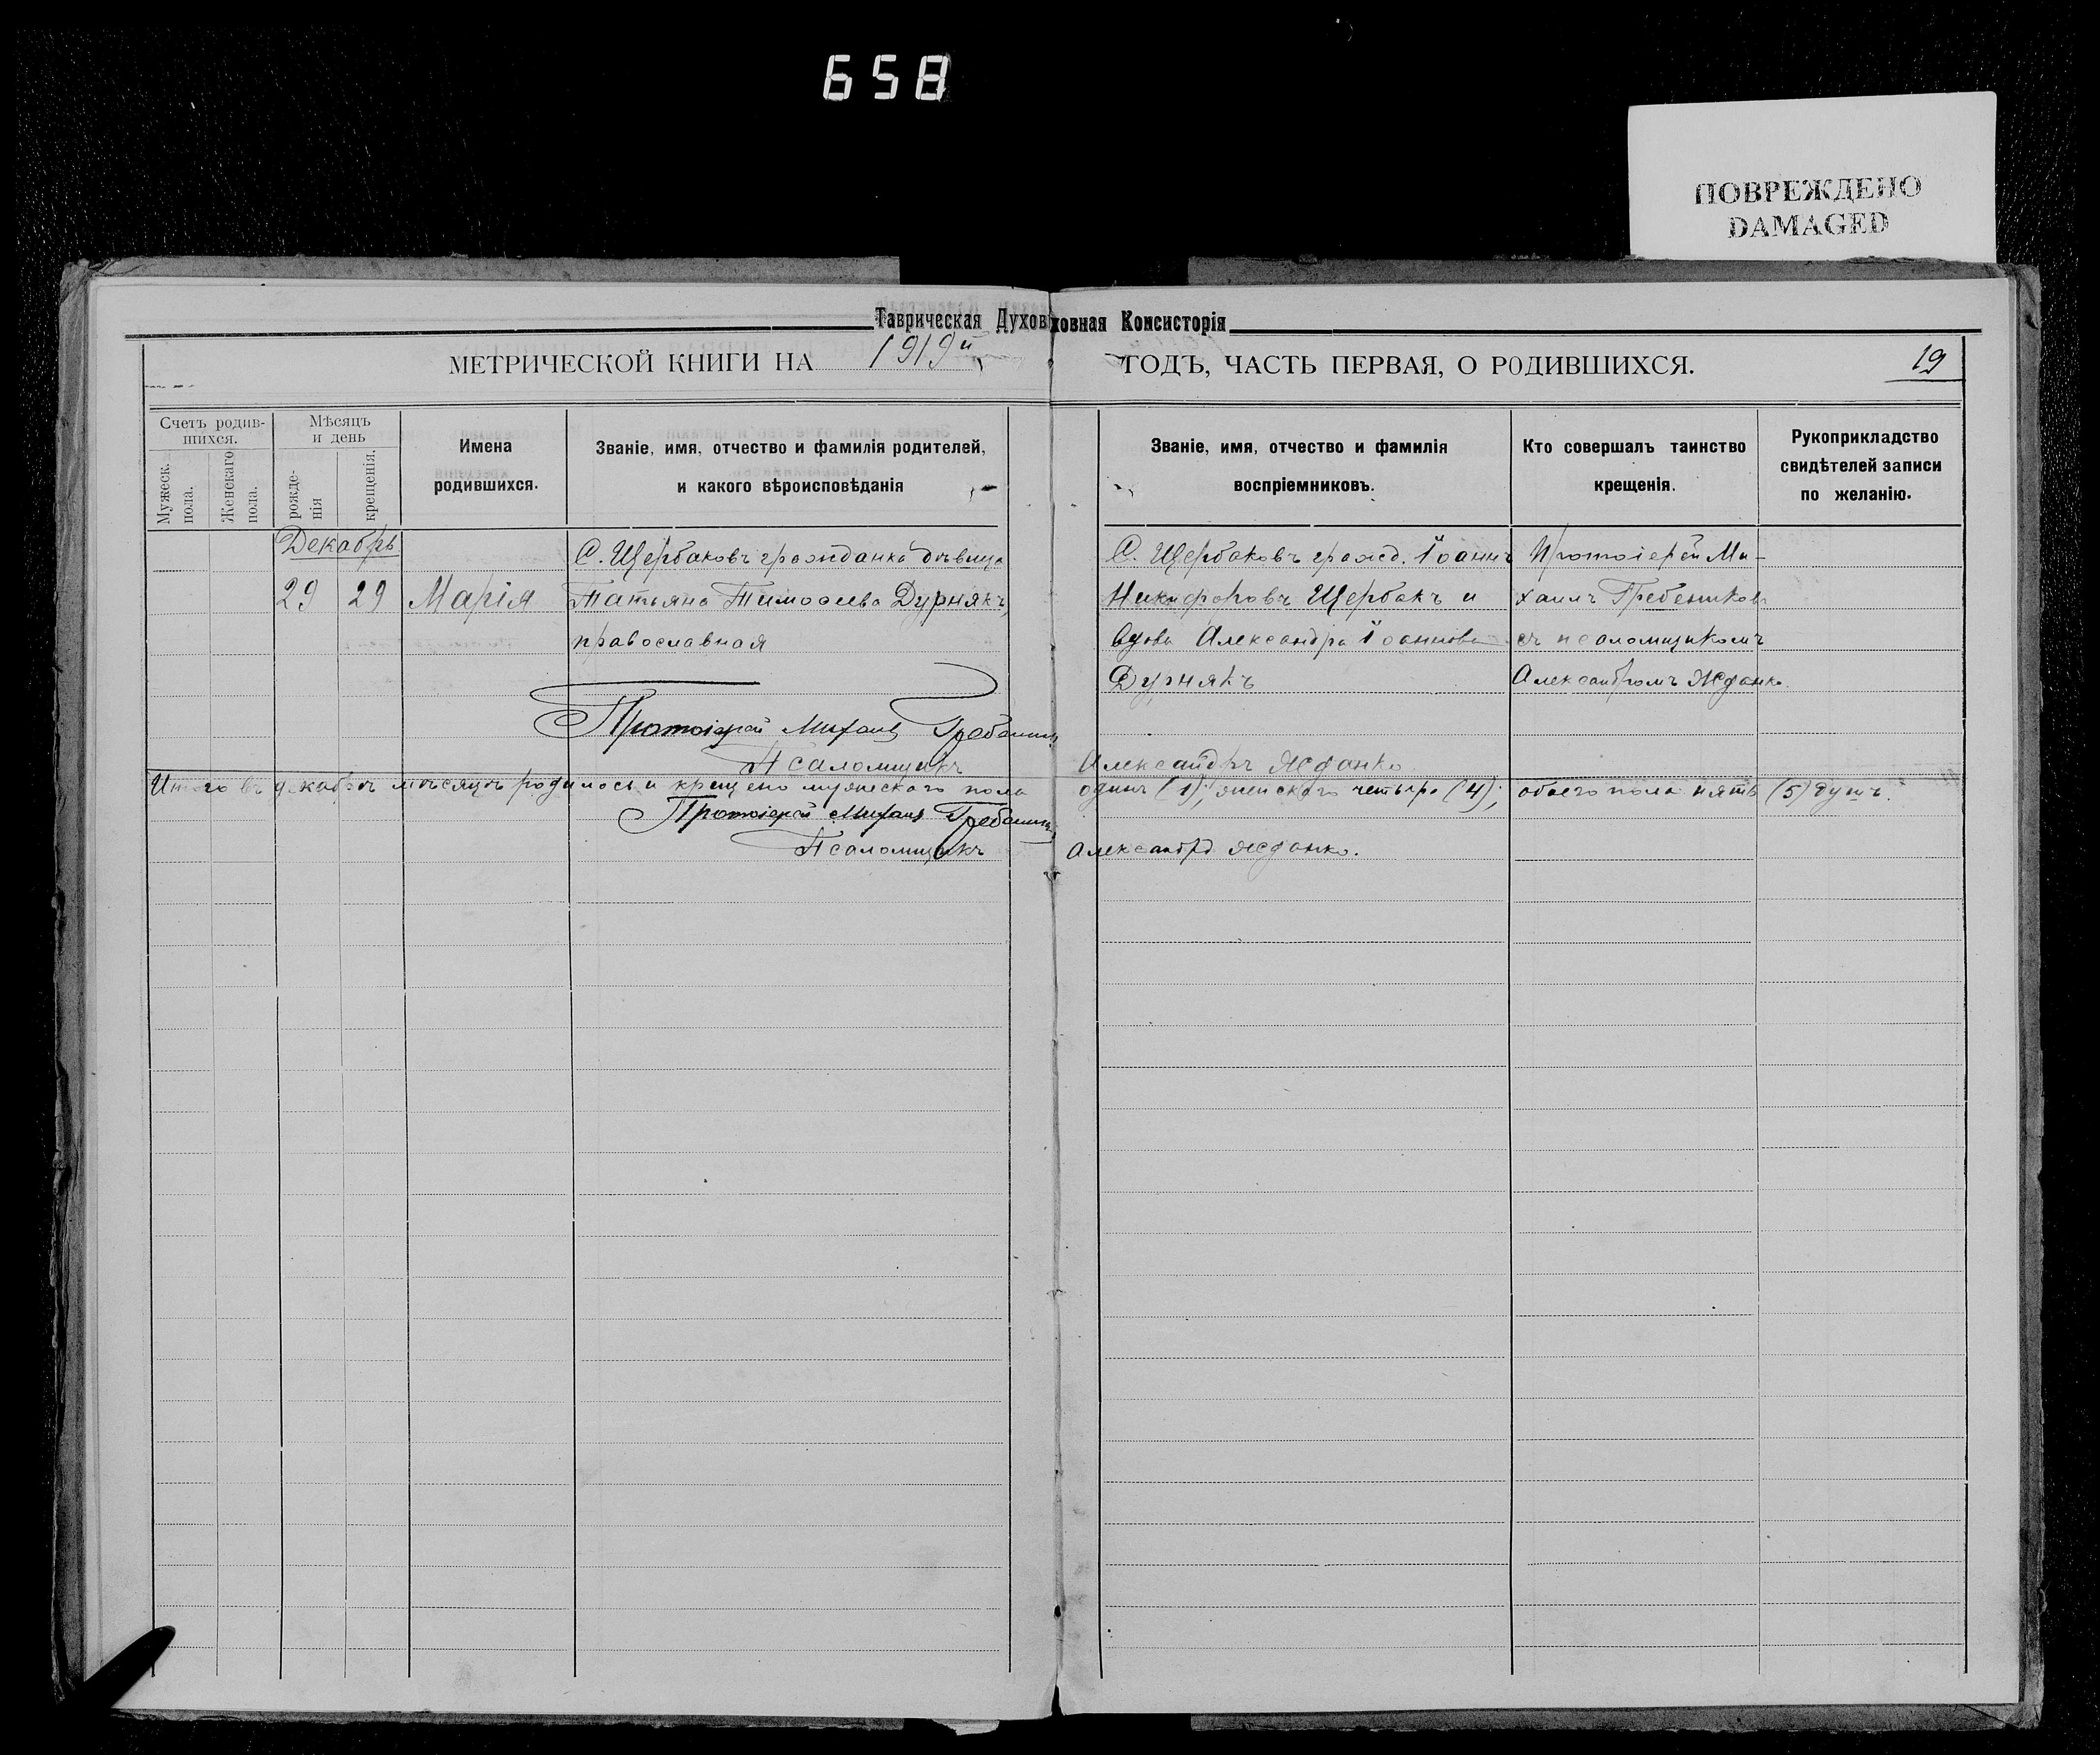 658
ПОВРЕЖДЕНО
DAMAGED
Таврическая Духовховная Консисторія
МЕТРИЧЕСКОЙ КНИГИ НА 1919й ГОДЪ, ЧАСТЬ ПЕРВАЯ, О РОДИВШИХСЯ.
19
Счетъ родив-
шихся.
Мужеск.
пола.
Женскаго
пола.
Мѣсяцъ
и день
рожде-
нія
крещенія.
Имена
родившихся.
Званіе, имя, отчество и фамилія родителей,
и какого вѣроисповѣданія
Званіе, имя, отчество и фамилія
воспріемниковъ.
Кто совершалъ таинство
крещенія.
Рукоприкладство
свидѣтелей записи
по желанію.
Декабрь
29 29 Марія
С. Щербаковъ гражданка дѣвица
Татьяна Тимоѳеева Дурнякъ,
православная
С. Щербаковъ гражд. Іоаннъ
Никифоровъ Щербакъ и
вдова Александра Іоаннова
Дурнякъ
Протоіерей Ми-
хаилъ Гребенниковъ
съ псаломщикомъ
Александромъ Жданко.
Протоіерей Михаилъ
Псаломщикъ Александръ Жданко
Итого въ декабрѣ мѣсяцѣ родилось и крещено мужескаго пола одинъ (1); женскаго четыре (4); обоего пола пять (5) душъ.
Протоіерей Михаилъ
Псаломщикъ Александръ Жданко.